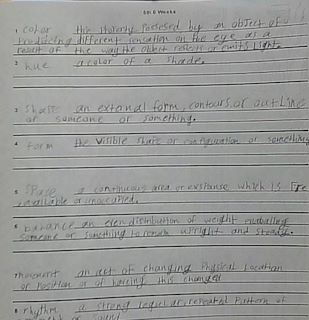 1 Color the property possesed by an object of
producing different sensation on the eye as a
result of the way the object reflects or emits light.
2 hue a color of a shade.
3 Shape an external form, contours, or outline
or someone or something.
4 form the visible shape or configuration or something
5 space a continuous area or expanse which is free
available or unoccupied.
6 balance an even distribution of weight enabling
someone or something to remain upright and steady.
7 movement an act of changing physical location
or position or of having this changed
8 rhythm a strong regular, repeated pattern of